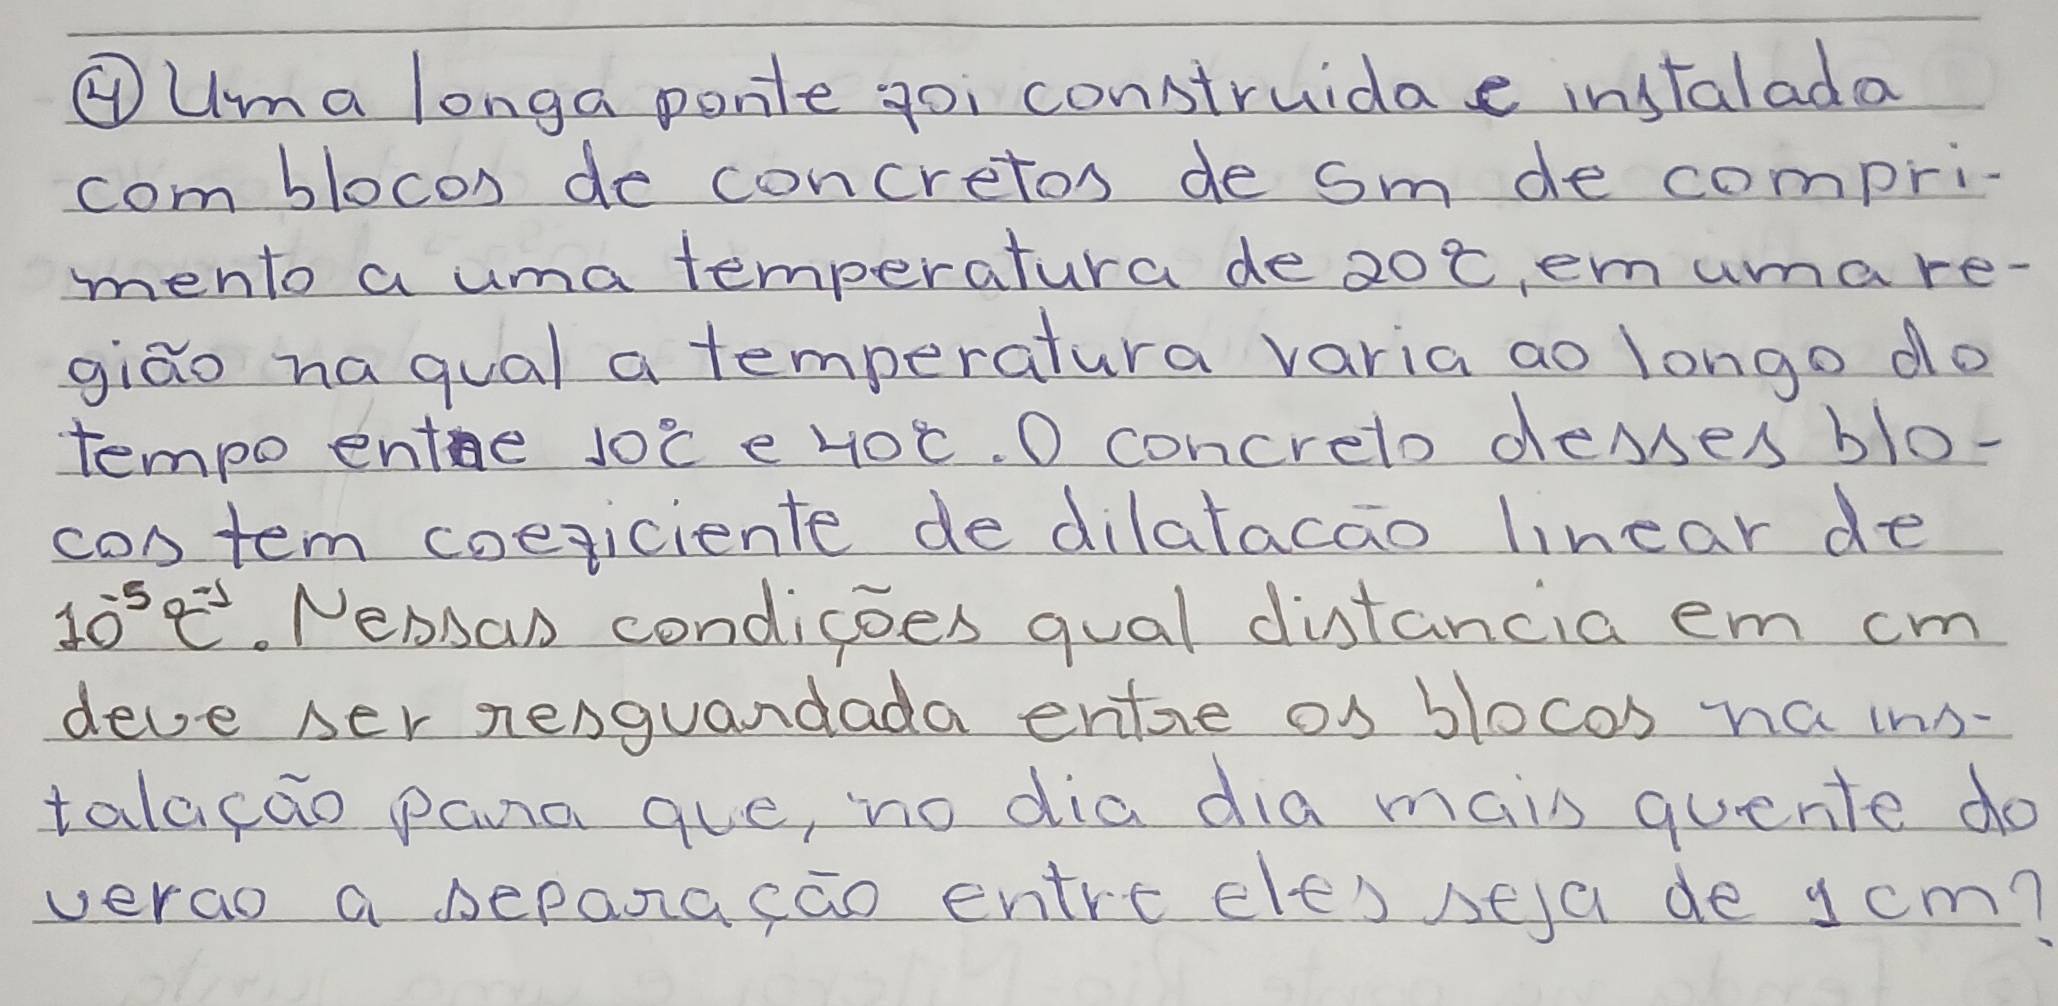 ④ Uma longa ponte foi construida e instalada
com blocos de concretos de 5m de compri-
mento a uma temperatura de 20°C, em uma re-
gião na qual a temperatura varia ao longo do
tempo entre 10°C e 40°C. O concreto desses blo-
cos tem coeficiente de dilatacão linear de
10⁻⁵ °C⁻¹. Nessas condições qual distancia em cm
deve ser resguardada entre os blocos na ins-
talação para que, no dia dia mais quente do
verao a separação entre eles seja de 1 cm?